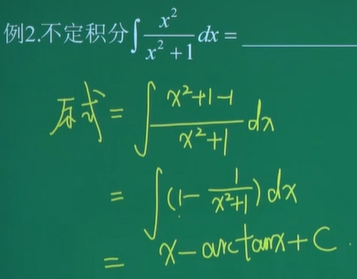 例2.不定积分∫ x²/(x²+1) dx = ______
原式 = ∫ (x²+1-1)/(x²+1) dx
= ∫ (1 - 1/(x²+1)) dx
= x - arctanx + C